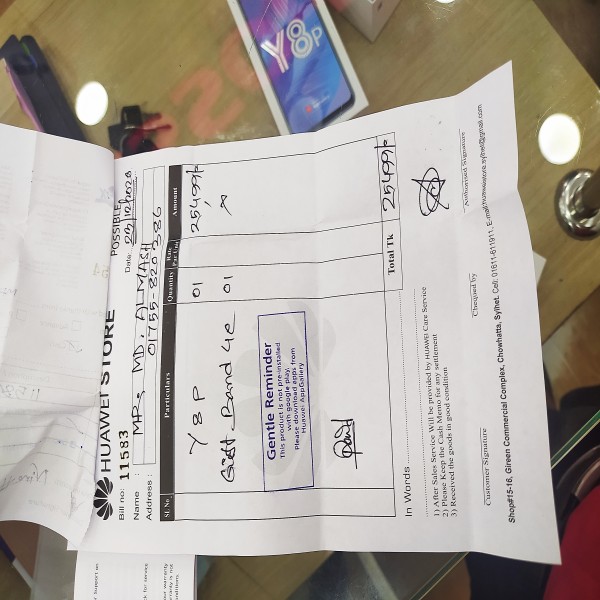 Y8p
HUAWEI STORE
POSSIBLE
Bill no: 11583
Date: 23/12/2020
Name : MR. MD. ALMASH
Address : 01755-820386
Sl. No. Particulars Quantity Rate Amount
Y8P 01 25499/=
Gift Band 4e 01
Gentle Reminder
This product is not pre-installed
with google play,
Please download apps from
Huawei AppGallery
Paid
Total Tk 25499/=
In Words
1) After Sales Service Will be provided by HUAWEI Care Service
2) Please Keep the Cash Memo for any settlement
3) Received the goods in good condition
Customer Signature Chequed by Authorised Signature
Shop#15-16, Gireen Commercial Complex, Chowhatta, Sylhet. Cell: 01611-611911, E-mail:huaweistore.sylhet@gmail.com